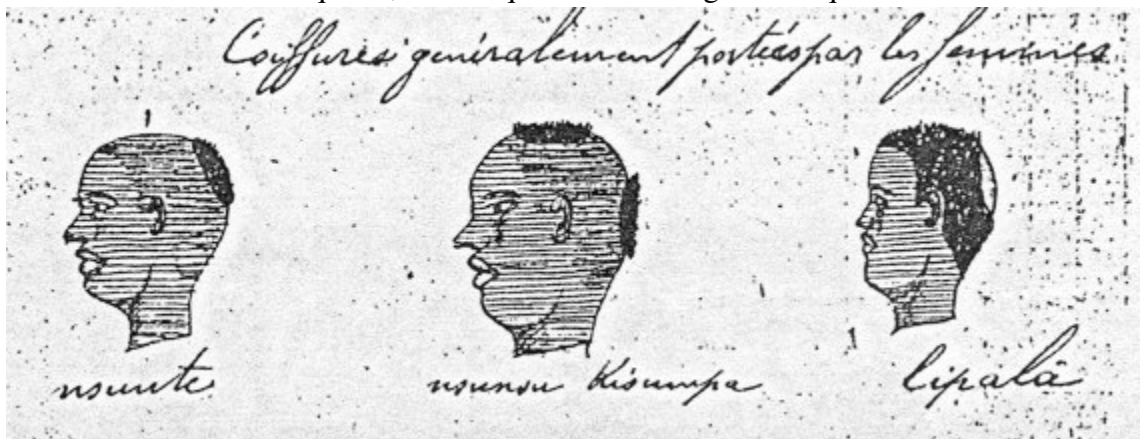 Coiffures généralement portées par les femmes
nsunte
nsunsu Kisumpa
lipala